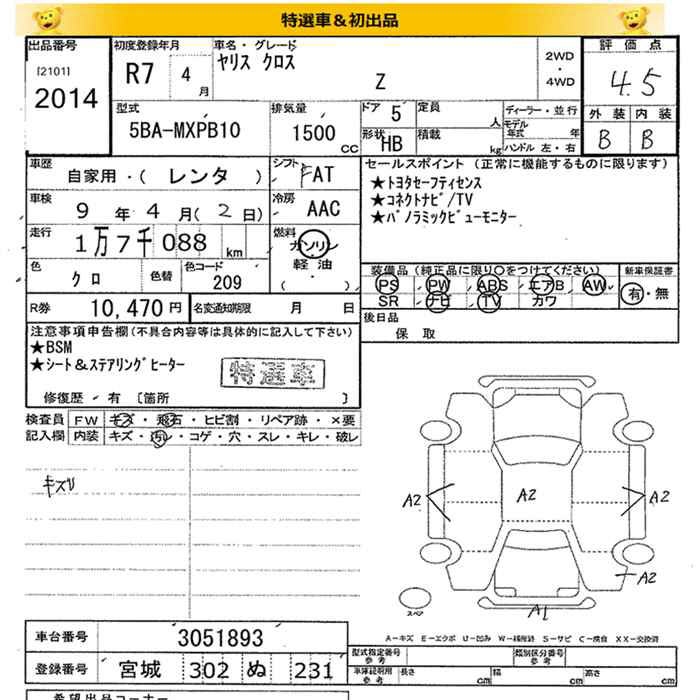 特選車＆初出品
出品番号
[2101]
2014
初度登録年月
R7 4月
車名・グレード
ヤリス クロス
Z
2WD
・
4WD
評価点
4.5
外装 内装
B B
型式
5BA-MXPB10
排気量
1500 cc
ドア 5
形状 HB
定員 人
積載 kg
ディーラー・並行
モデル年式 年
ハンドル 左・右
車歴
自家用・( レンタ )
シフト FAT
車検
9 年 4 月( 2 日)
冷房 AAC
走行
1万7千088 km
燃料
ガソリン
軽油・
( )
色 クロ
色替
色コード 209
R券 10,470円
名変通知期限 月 日
セールスポイント (正常に機能するものに限ります)
★トヨタセーフティセンス
★コネクトナビ/TV
★パノラミックビューモニター
装備品(純正品に限り○をつけてください)
PS PW ABS エアB AW
SR ナビ TV カワ
新車保証書
有・無
後日品
保 取
注意事項申告欄(不具合内容等は具体的に記入して下さい)
★BSM
★シート&ステアリングヒーター
特選車
修復歴・有 [箇所 ]
検査員 FW キズ・飛石・ヒビ割・リペア跡・×要
記入欄 内装 キズ・汚レ・コゲ・穴・スレ・キレ・破レ
キズリ
A2
A2
A2
A2
A1
スペア
A-キズ E-エクボ U-凹み W-補修跡 S-サビ C-腐食 XX-交換済
車台番号 3051893
登録番号 宮城 302 ぬ 231
型式指定番号
参考
類別区分番号
参考
車庫証明用
参考
長さ cm
幅 cm
高さ cm
希望出品コーナー